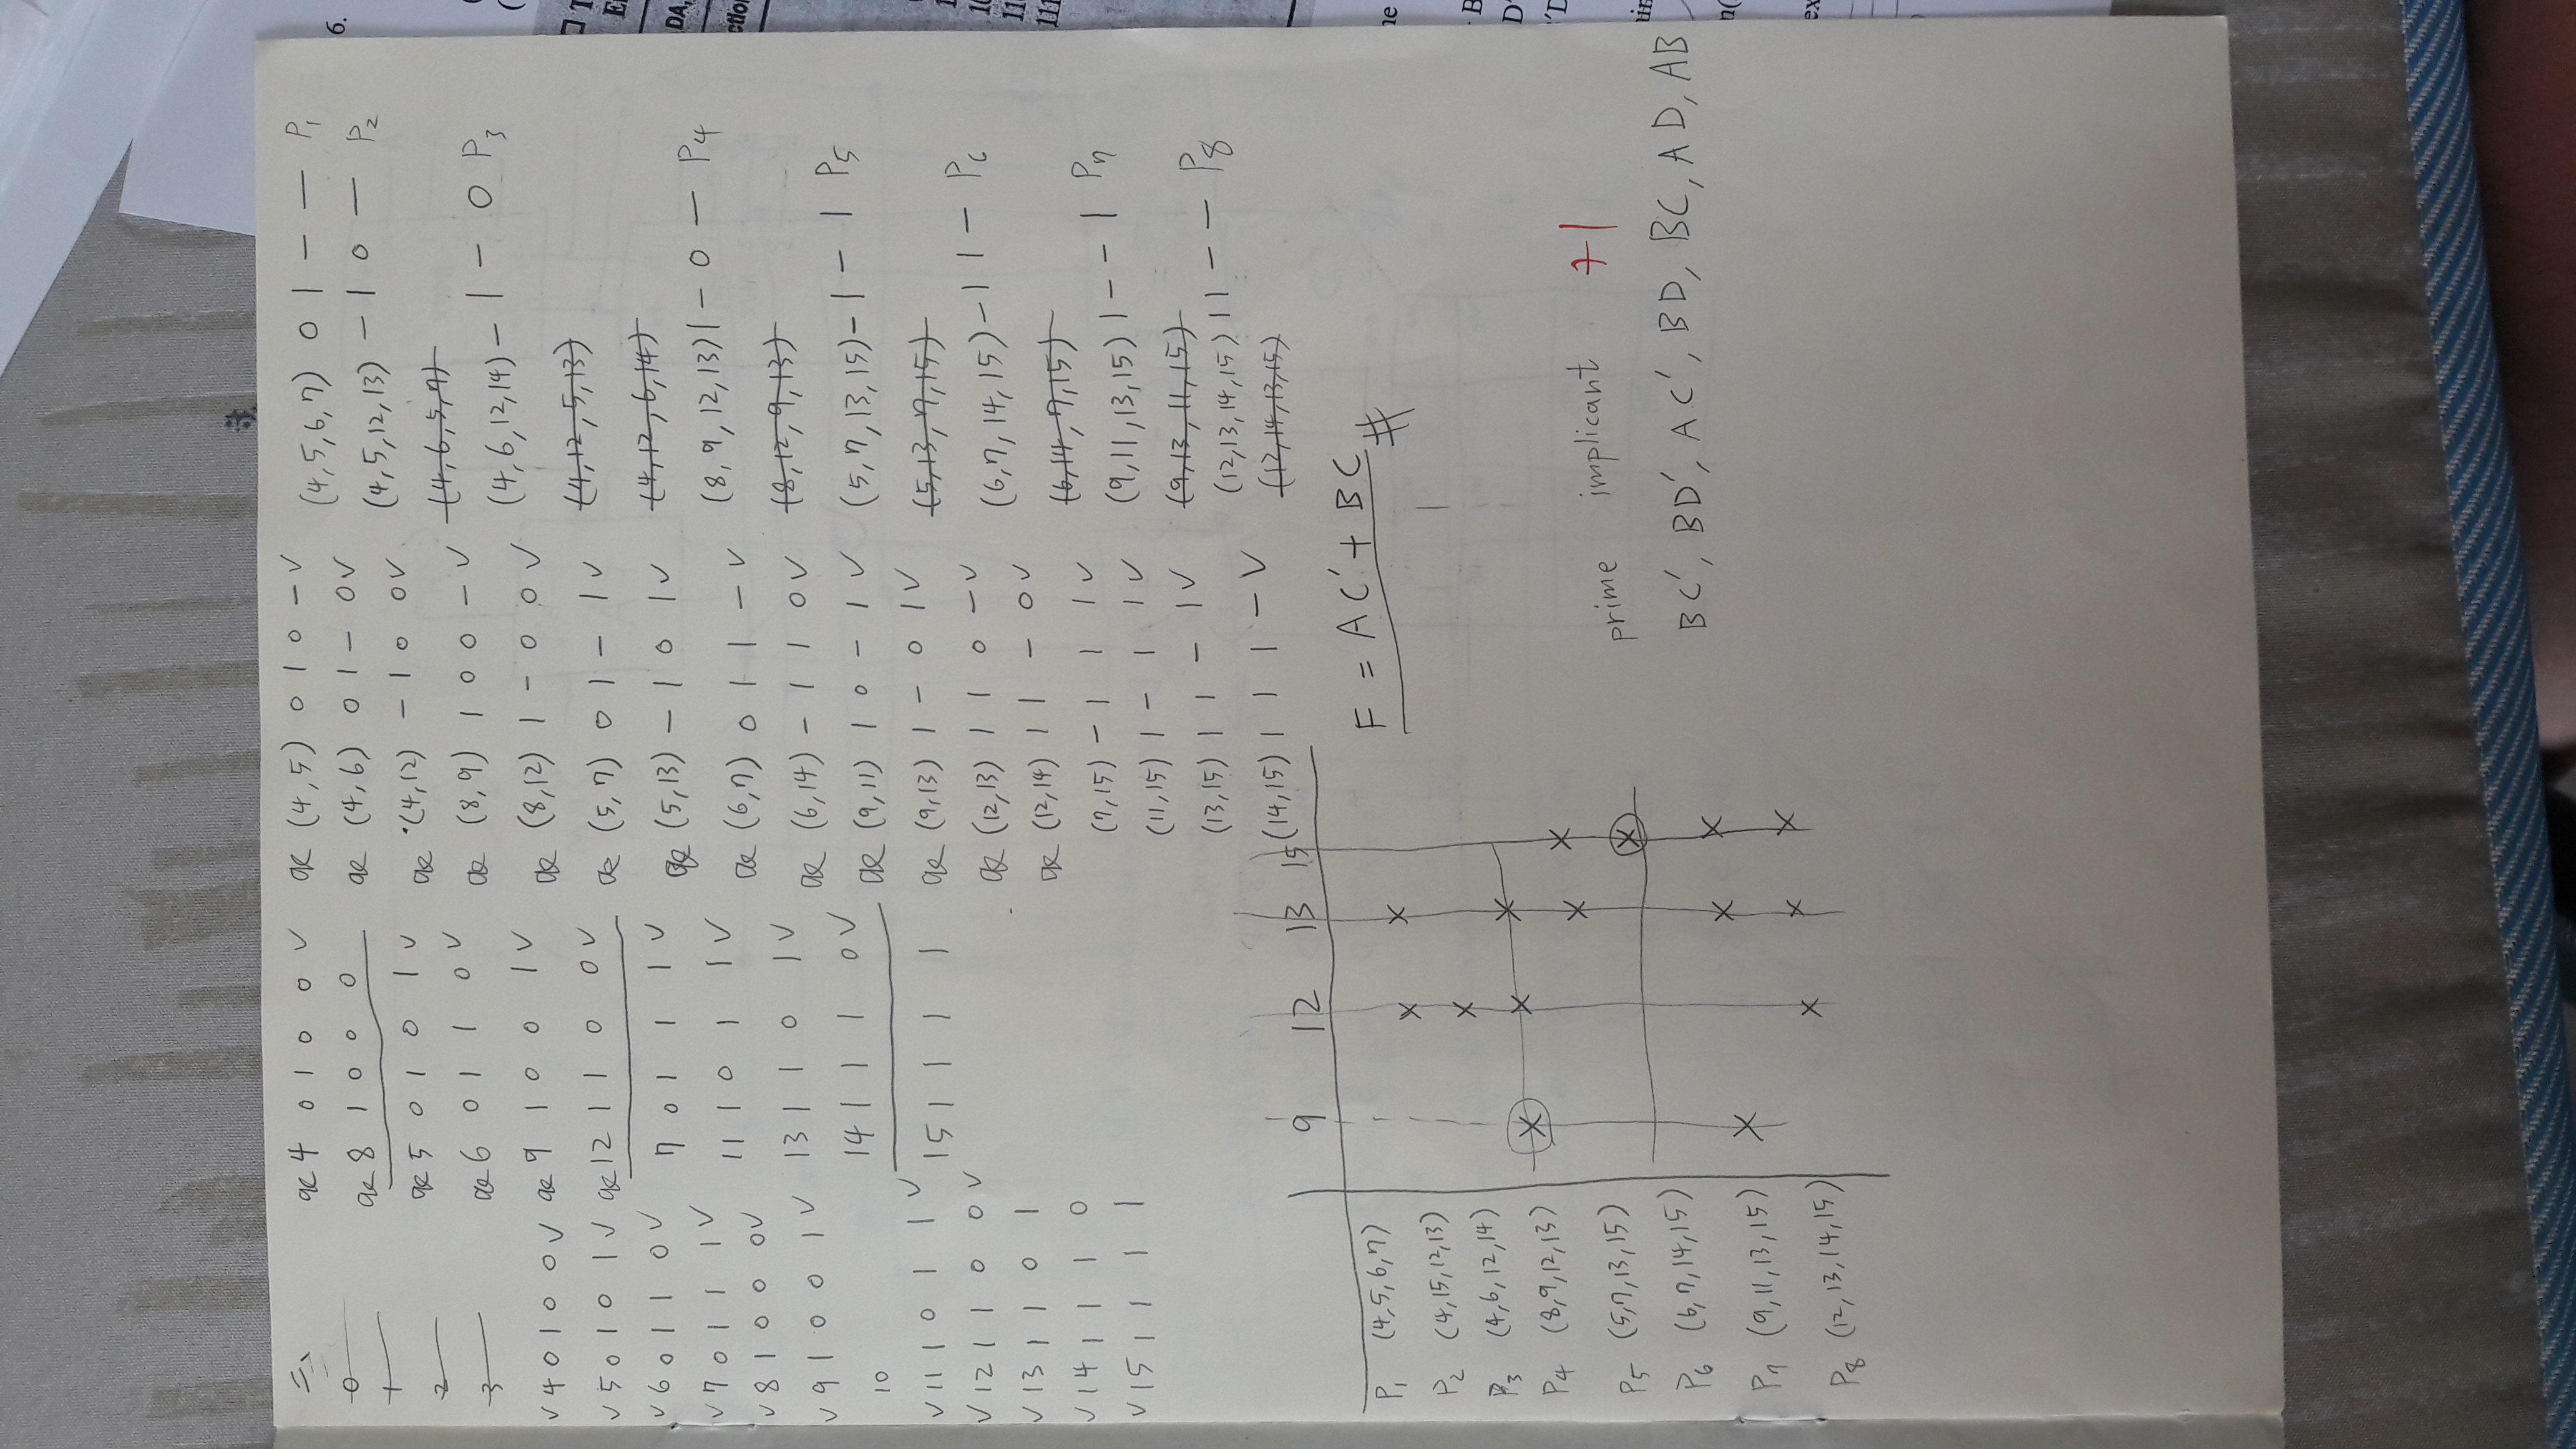 二、
0
1
2
3
v 4 0 1 0 0 v
v 5 0 1 0 1 v
v 6 0 1 1 0 v
v 7 0 1 1 1 v
v 8 1 0 0 0 v
v 9 1 0 0 1 v
10
v 11 1 0 1 1 v
v 12 1 1 0 0 v
v 13 1 1 0 1
v 14 1 1 1 0
v 15 1 1 1 1
4 0 1 0 0 v
8 1 0 0 0
5 0 1 0 1 v
6 0 1 1 0 v
9 1 0 0 1 v
12 1 1 0 0 v
7 0 1 1 1 v
11 1 0 1 1 v
13 1 1 0 1 v
14 1 1 1 0 v
15 1 1 1 1
(4,5) 0 1 0 - v
(4,6) 0 1 - 0 v
(4,12) - 1 0 0 v
(8,9) 1 0 0 - v
(8,12) 1 - 0 0 v
(5,7) 0 1 - 1 v
(5,13) - 1 0 1 v
(6,7) 0 1 1 - v
(6,14) - 1 1 0 v
(9,11) 1 0 - 1 v
(9,13) 1 - 0 1 v
(12,13) 1 1 0 - v
(12,14) 1 1 - 0 v
(7,15) - 1 1 1 v
(11,15) 1 - 1 1 v
(13,15) 1 1 - 1 v
(14,15) 1 1 1 - v
(4,5,6,7) 0 1 - - P1
(4,5,12,13) - 1 0 - P2
(4,6,5,7)
(4,6,12,14) - 1 - 0 P3
(4,12,5,13)
(4,12,6,14)
(8,9,12,13) 1 - 0 - P4
(8,12,9,13)
(5,7,13,15) - 1 - 1 P5
(5,13,7,15)
(6,7,14,15) - 1 1 - P6
(6,14,7,15)
(9,11,13,15) 1 - - 1 P7
(9,13,11,15)
(12,13,14,15) 1 1 - - P8
(12,14,13,15)
9 12 13 15
P1 (4,5,6,7)
P2 (4,15,12,13) x x
P3 (4,6,12,14) x
P4 (8,9,12,13) x x x
P5 (5,7,13,15) x x
P6 (6,7,14,15) x
P7 (9,11,13,15) x x x
P8 (12,13,14,15) x x x
F = AC' + BC #
prime implicant +1
BC', BD', AC', BD, BC, AD, AB
6.
DA,